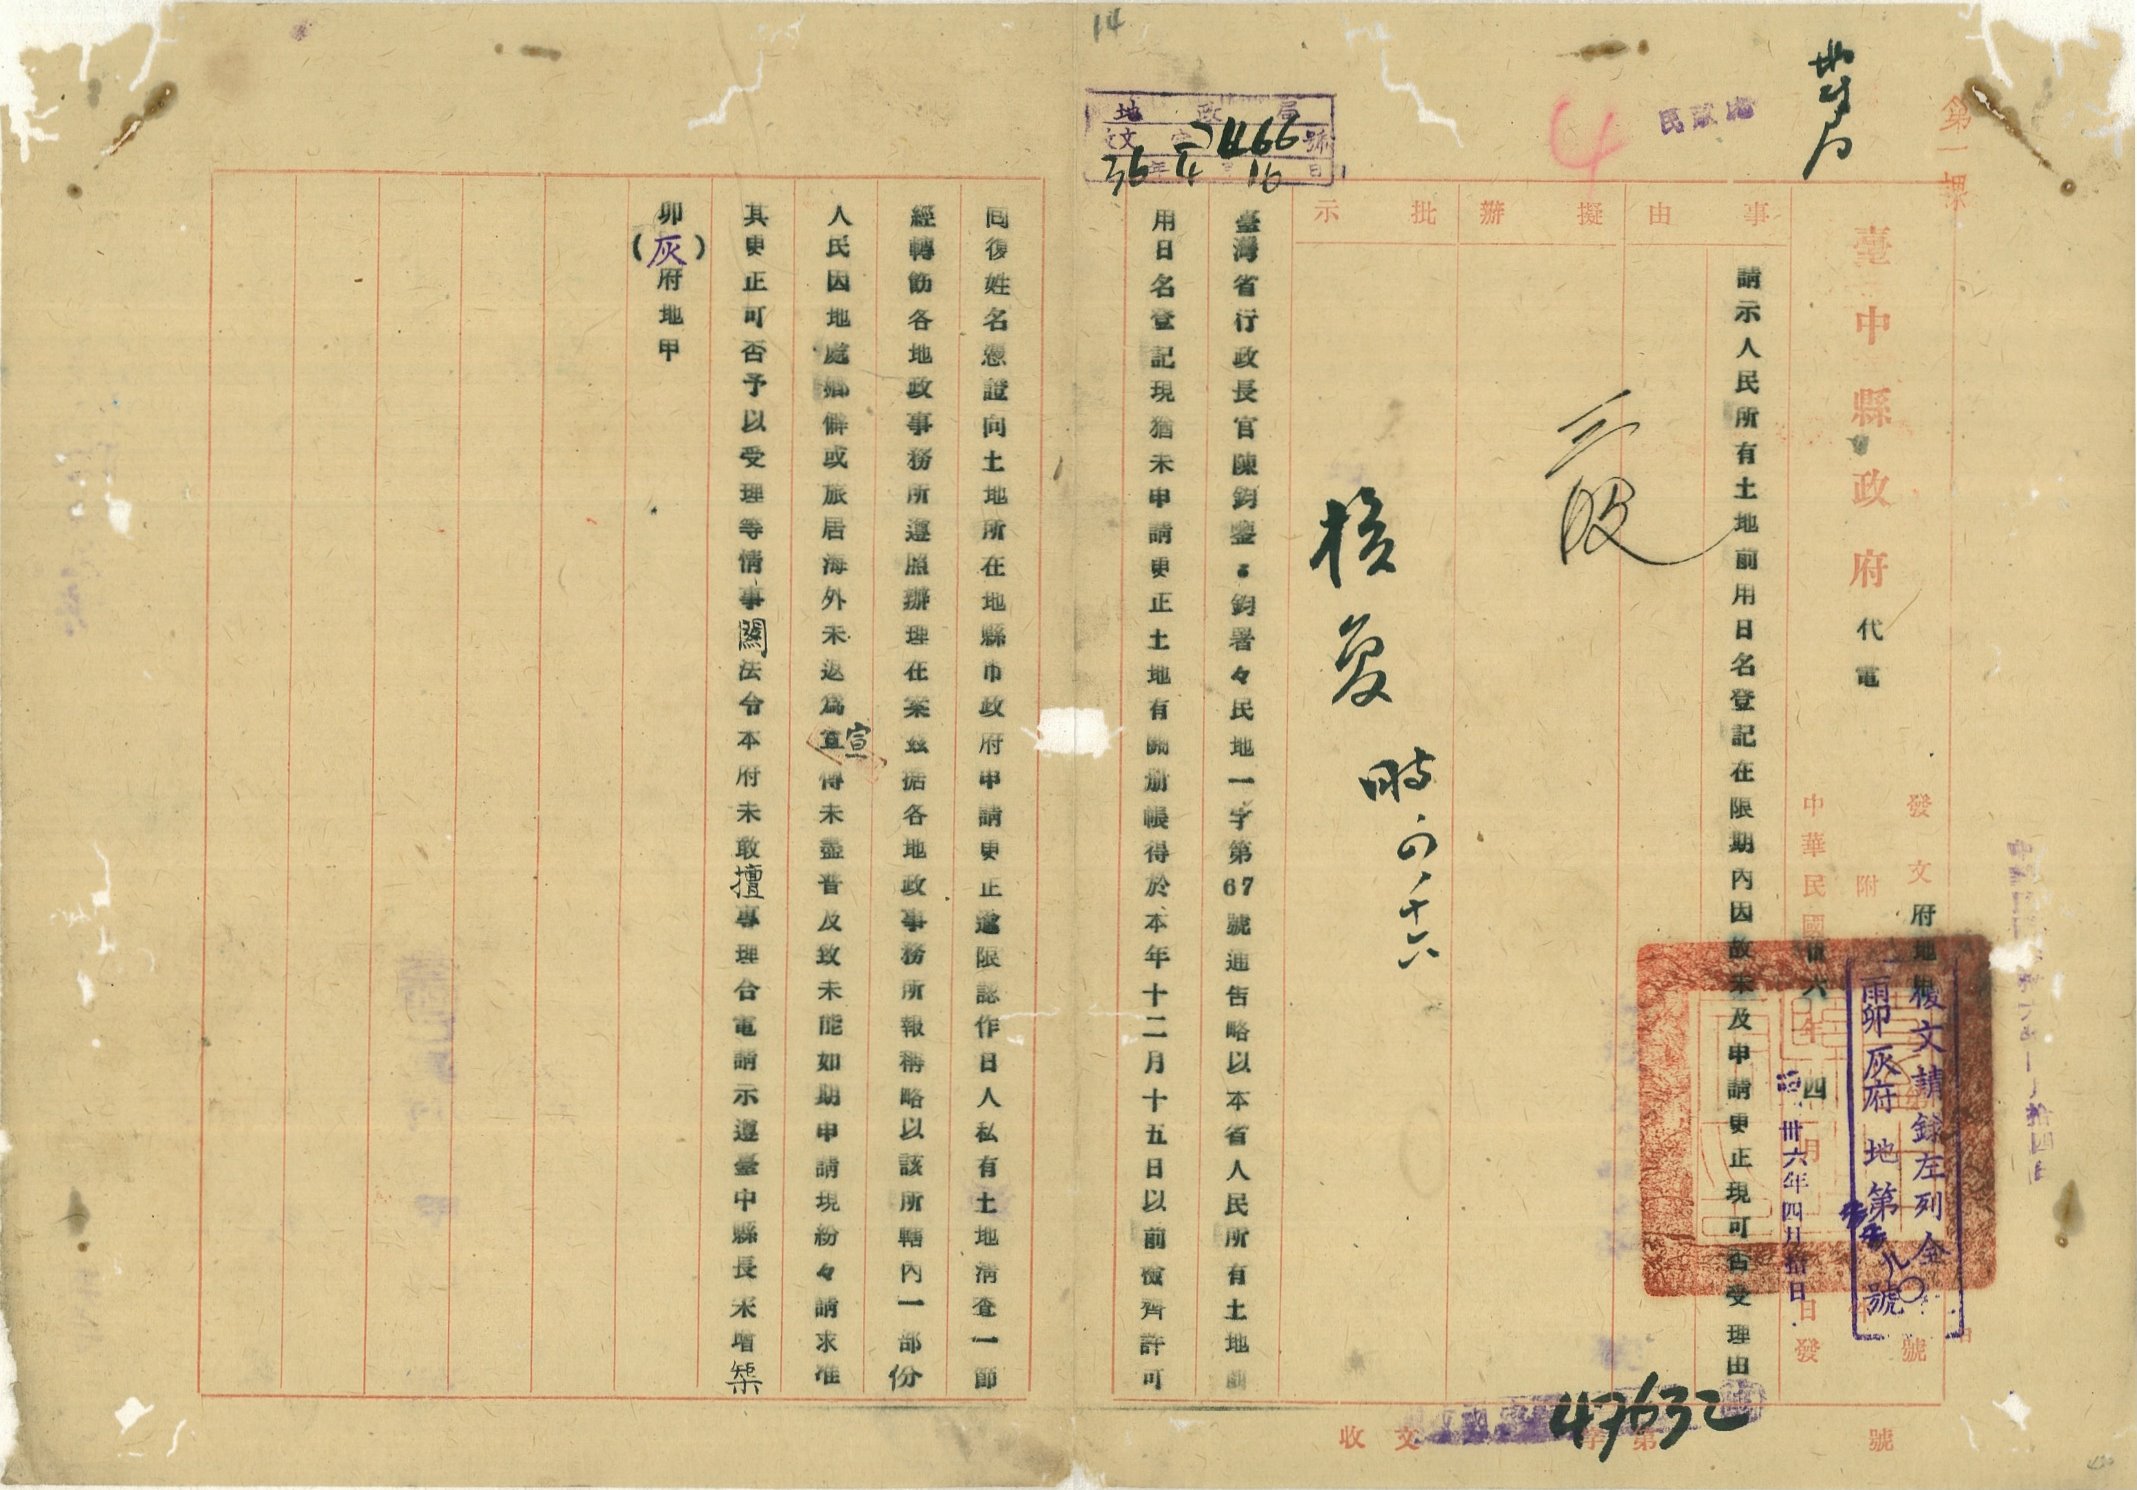 14
第一課
地政局
民政處
4
臺中縣政府代電
發文府地 號
附
中華民國卅六年四月 日發
覆文請錄左列全銜
雨卯灰府地第 號
卅六年四月拾日
事由
擬辦
批示
請示人民所有土地前用日名登記在限期內因故未及申請更正現可否受理由
三股
核复
四、十六
地政局
收文字 2466 號
36年4月16日
臺灣省行政長官陳鈞鑒:鈞署々民地一字第67號通告略以本省人民所有土地前
用日名登記現猶未申請更正土地有關册帳得於本年十二月十五日以前檢齊許可
囘復姓名憑證向土地所在地縣市政府申請更正逾限認作日人私有土地清查一節
經轉飭各地政事務所遵照辦理在案玆据各地政事務所報稱略以該所轄內一部份
人民因地處鄉僻或旅居海外未返爲宣傳未盡普及致未能如期申請現紛々請求准
其更正可否予以受理等情事關法令本府未敢擅專理合電請示遵臺中縣長宋增榘
卯(灰)府地甲
收文 字第 47632 號